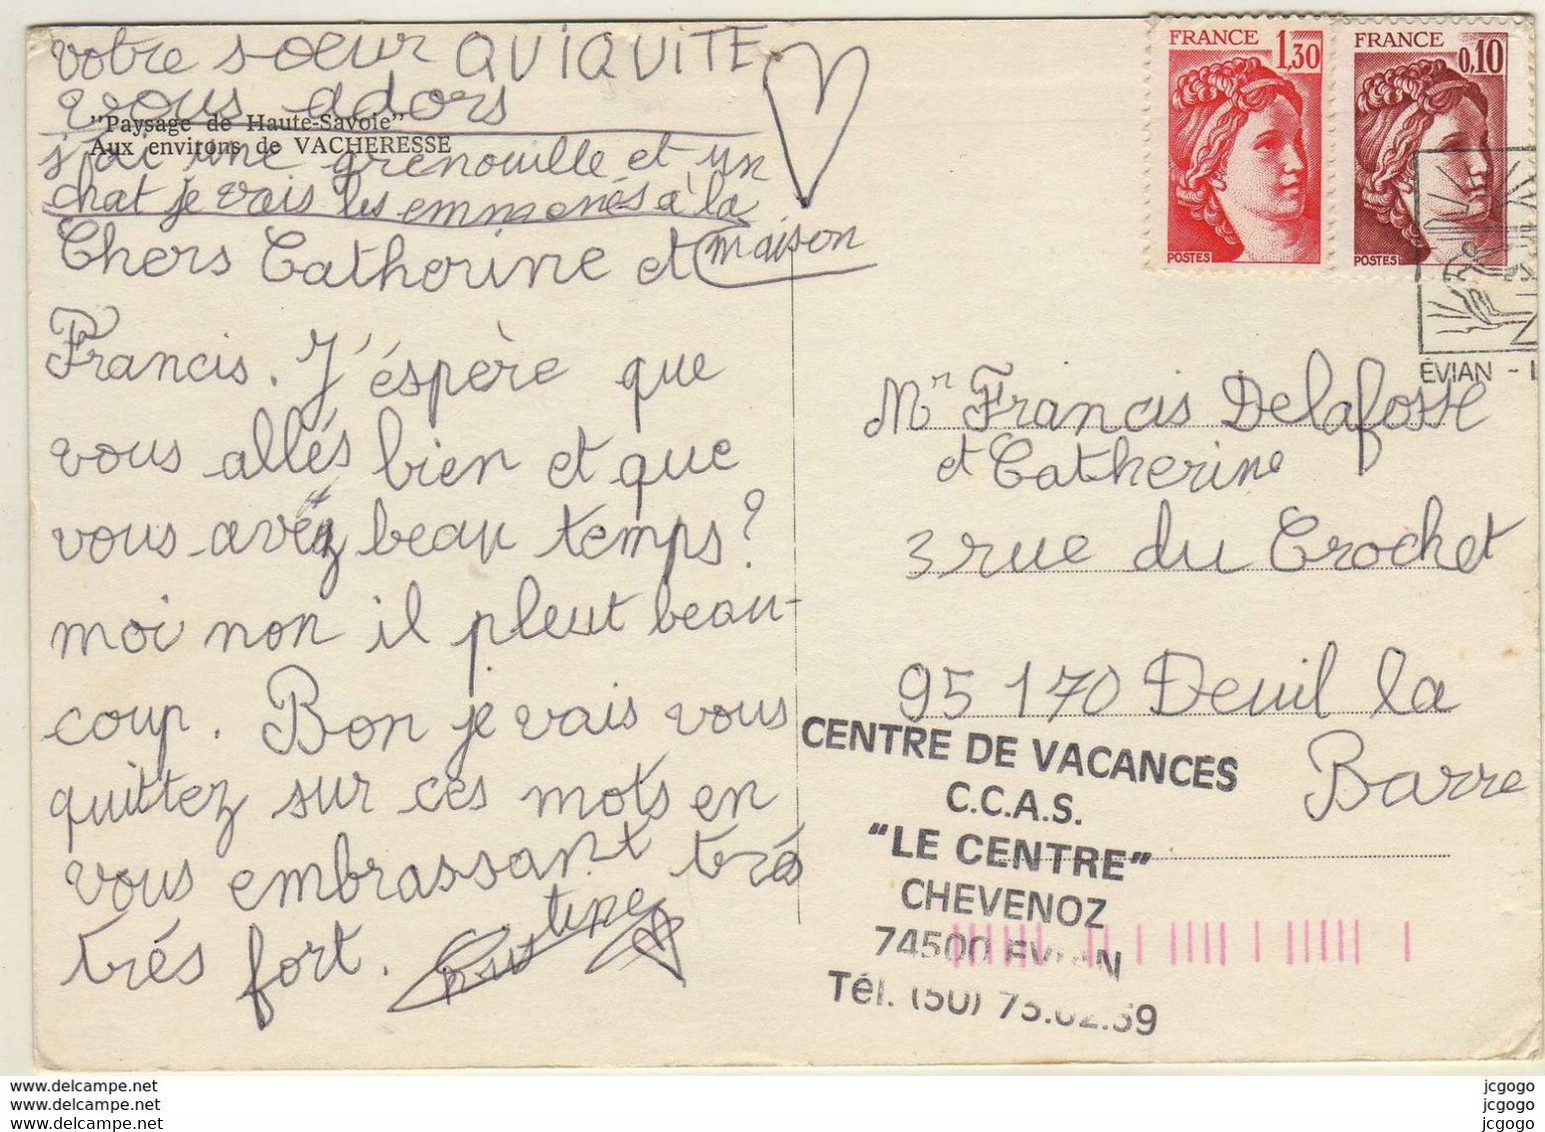 votre soeur QUIQUITE
vous adors
"Paysage de Haute-Savoie"
Aux environs de VACHERESSE
j'ai une grenouille et un
chat je vais les emmenés à la
maison
Chers Catherine et
Francis. J'éspère que
vous allés bien et que
vous avez beau temps?
moi non il pleut beau-
coup. Bon je vais vous
quittez sur ces mots en
vous embrassant trés
trés fort.
FRANCE 1,30
POSTES
FRANCE 0,10
POSTES
ÉVIAN -
Mr Francis Delafosse
et Catherine
3 rue du Crochet
95170 Deuil la
Barre
CENTRE DE VACANCES
C.C.A.S.
"LE CENTRE"
CHEVENOZ
74500 EVIAN
Tél. (50) 75.02.59
www.delcampe.net
www.delcampe.net
www.delcampe.net
jcgogo
jcgogo
jcgogo